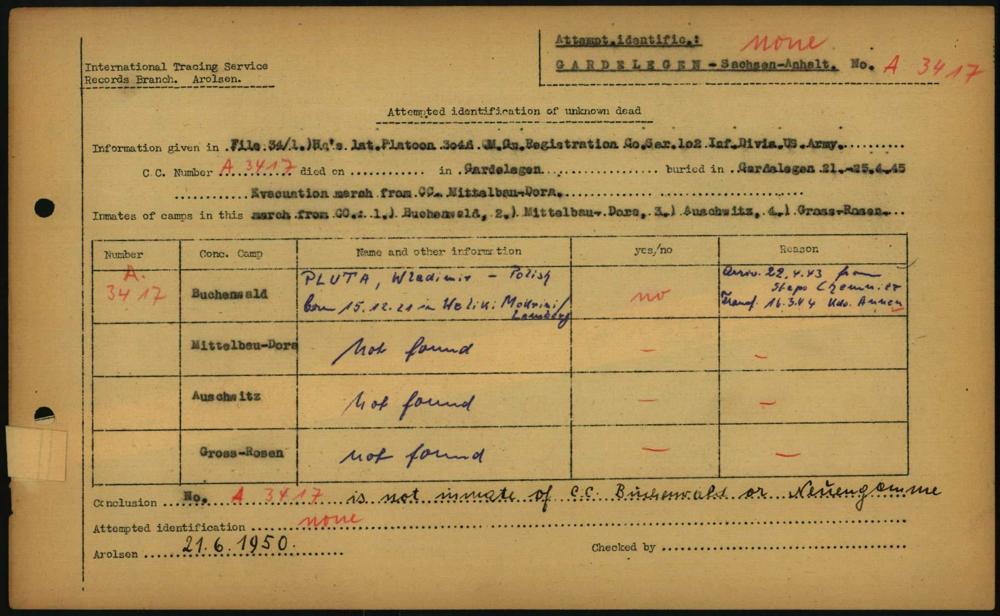 International Tracing Service
Records Branch. Arolsen.
Attempt.identific.: none
GARDELEGEN - Sachsen-Anhalt. No. A 3417
Attempted identification of unknown dead
Information given in File 34/1.)Hq's 1st.Platoon 3046 QM.Gr.Registration Co.Ser.102 Inf.Divis.US Army.
C.C. Number A 3417 died on ............ in Gardelegen ............ buried in Gardelegen 21.-25.4.45
Evacuation march from CC. Mittelbau-Dora.
Inmates of camps in this march from CC.: 1.) Buchenwald, 2.) Mittelbau-Dora, 3.) Auschwitz, 4.) Gross-Rosen.
Number Conc. Camp Name and other information yes/no Reason
A. 3417 Buchenwald PLUTA, Wladimir - Polish no Arriv. 22.4.43 from
born 15.12.21 in Weliki Stapo Chemnitz
Lemberg Transf. 16.3.44 Kdo. Annen
Mittelbau-Dora Not found - -
Auschwitz Not found - -
Gross-Rosen Not found - -
Conclusion No. A 3417 is not inmate of C.C. Buchenwald or Neuengamme
Attempted identification none
Arolsen 21.6.1950. Checked by